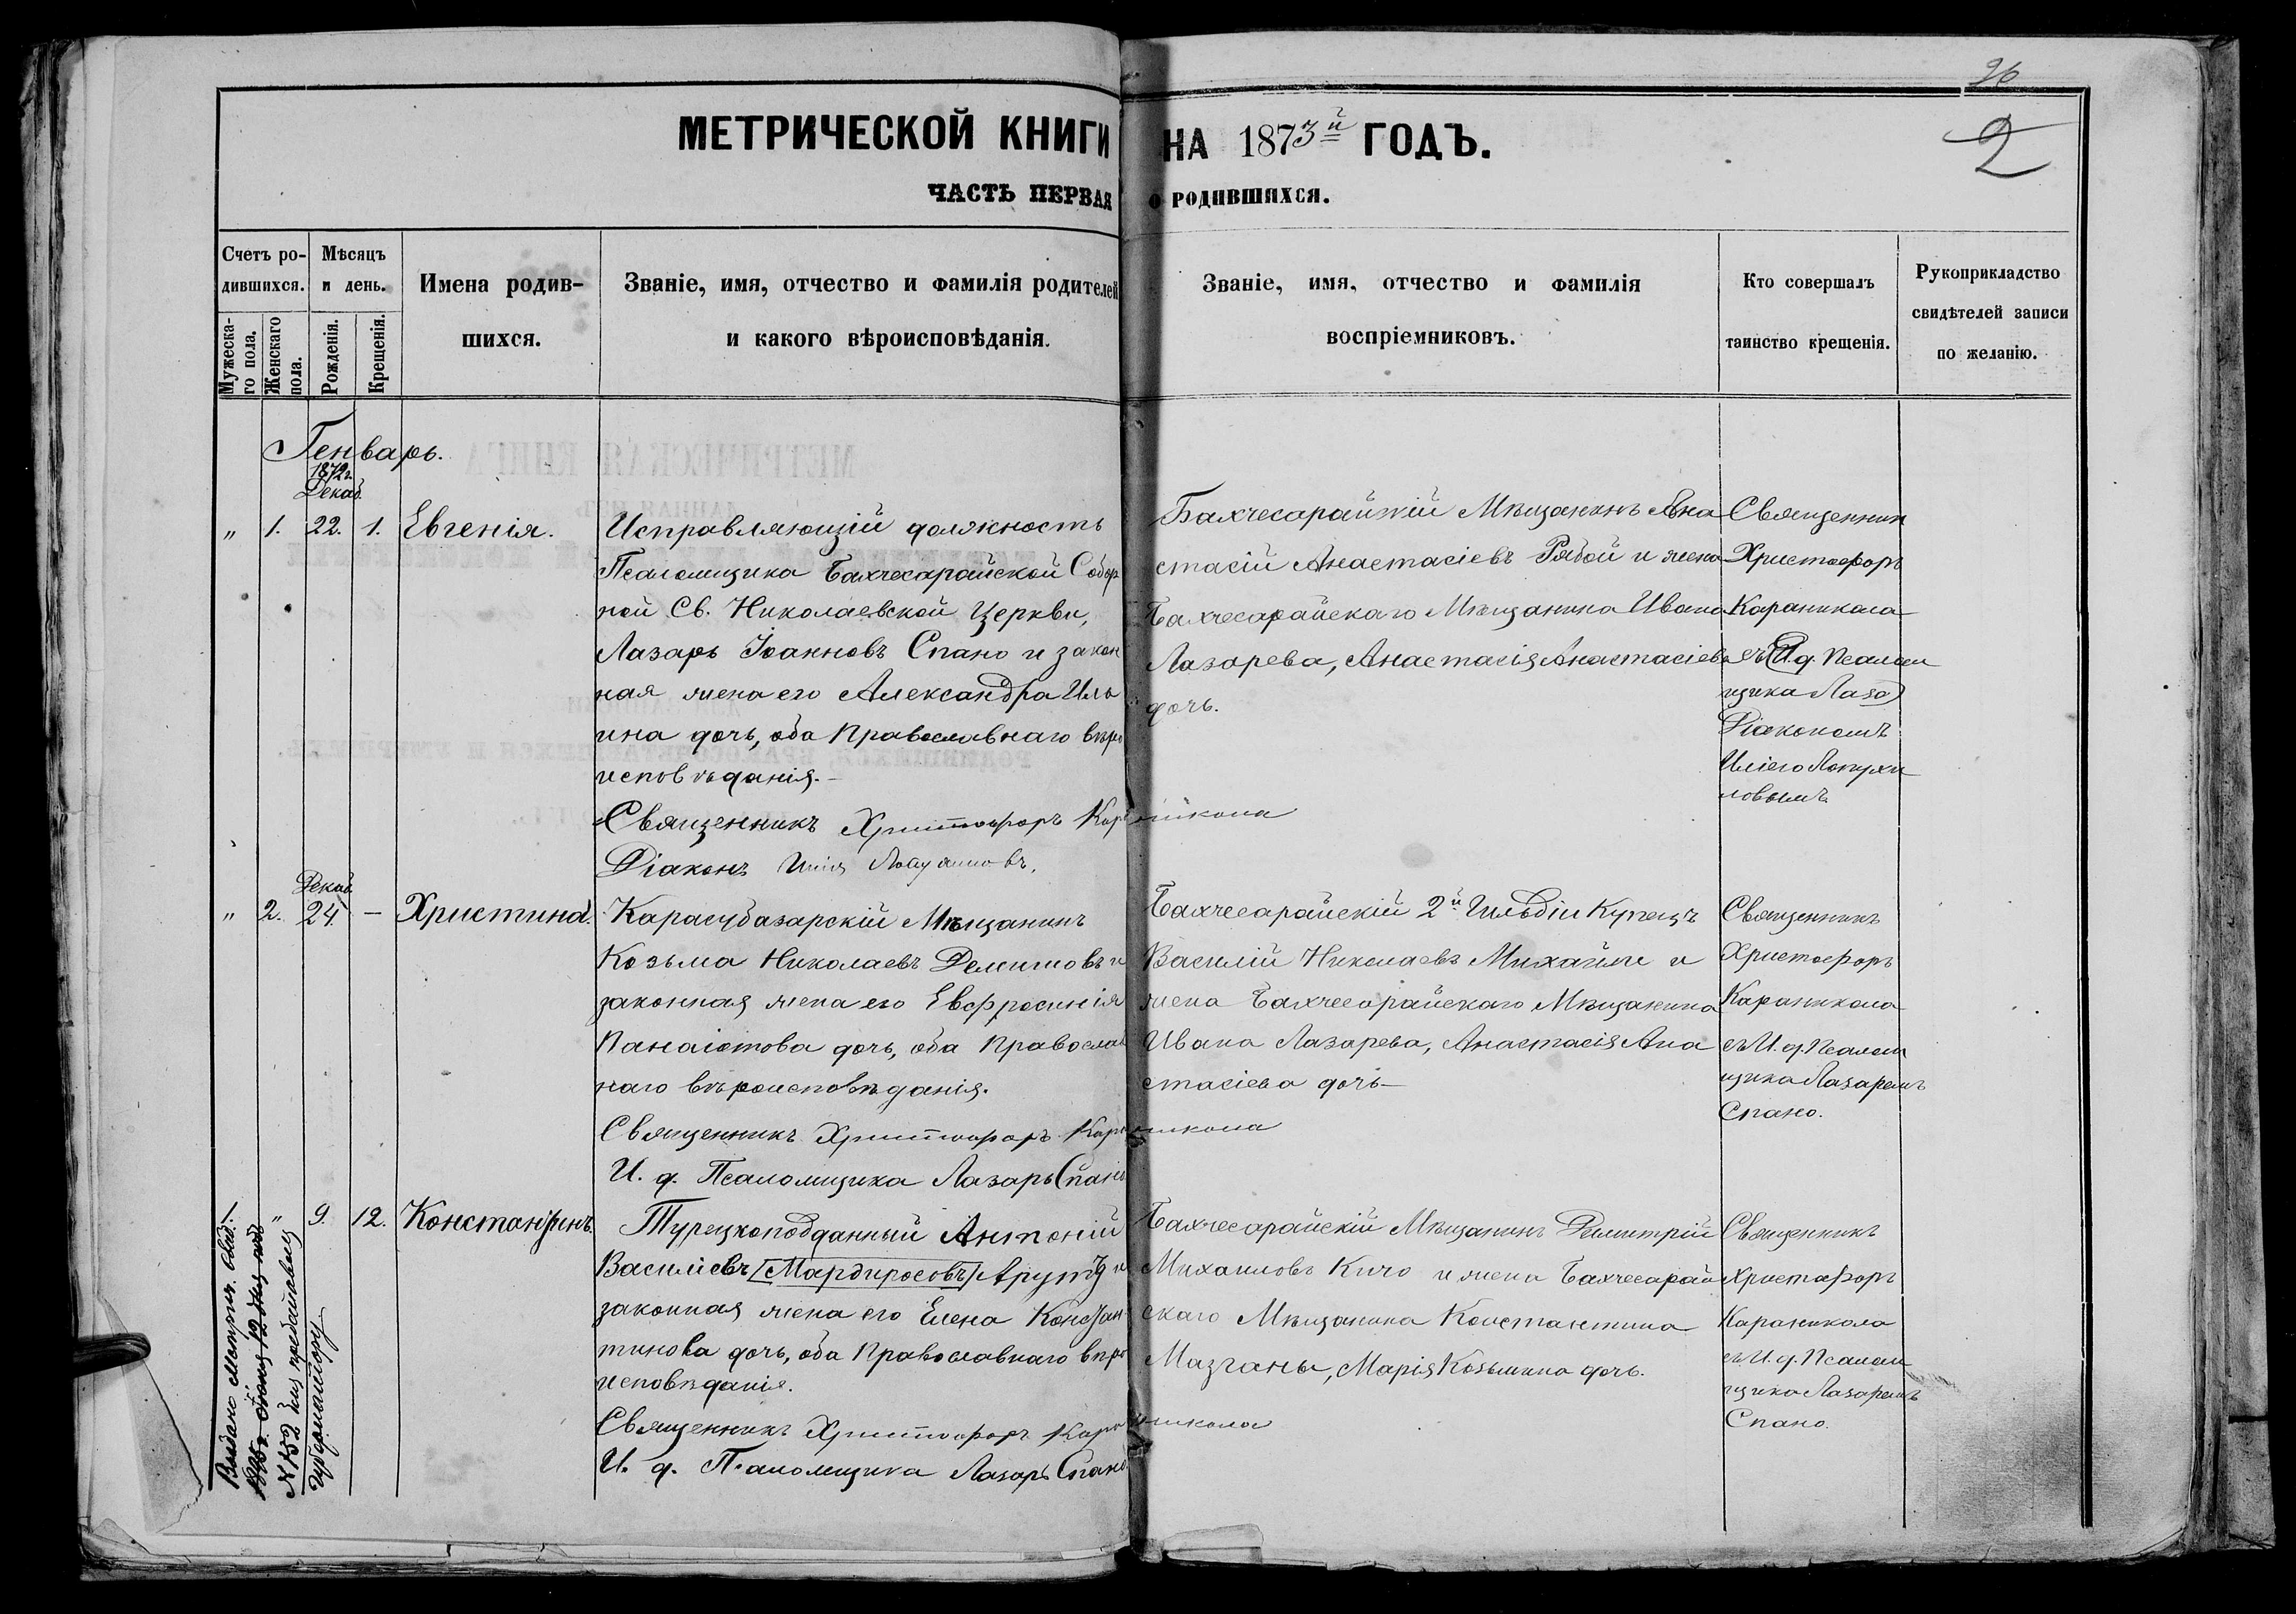 26
2
МЕТРИЧЕСКОЙ КНИГИ НА 1873й ГОДЪ.
ЧАСТЬ ПЕРВАЯ О РОДИВШИХСЯ.
Счетъ ро-
дившихся.
Мужеска-
го пола.
Женскаго
пола.
Мѣсяцъ
и день.
Рожденія.
Крещенія.
Имена родив-
шихся.
Званіе, имя, отчество и фамилія родителей
и какого вѣроисповѣданія.
Званіе, имя, отчество и фамилія
воспріемниковъ.
Кто совершалъ
таинство крещенія.
Рукоприкладство
свидѣтелей записи
по желанію.
Генварь.
1872г.
Декаб.
„ 1. 22. 1. Евгенія.
Исправляющій должность
Псаломщика Бахчесарайской Собор
ной Св. Николаевской Церкви,
Лазарь Іоанновъ Спано и закон
ная жена его Александра Иль
ина дочь, оба Православнаго вѣро
исповѣданія.-
Священникъ Христофоръ Караникола
Діаконъ Илія
Бахчесарайскій Мѣщанинъ Ана
стасій Анастасіевъ Рябой и жена
Бахчесарайскаго Мѣщанина Ивана
Лазарева, Анастасія Анастасіева
дочь.
Священник
Христофоръ
Караникола
съ (И.д. Псалом
щика Лаза)
Діакономъ
Иліею
Декаб.
„ 2. 24. — Христина.
Карасубазарскій Мѣщанинъ
Козьма Николаевъ и
законная жена его Евфросинія
Панаіотова дочь, оба Православ
наго вѣроисповѣданія.
Священникъ Христофоръ Караникола
И. д. Псаломщика Лазарь Спано
Бахчесарайскій 2й Гильдіи Купецъ
Василій Николаевъ Михайли и
жена Бахчесарайскаго Мѣщанина
Ивана Лазарева, Анастасія Ана
стасіева дочь—
Священникъ
Христофоръ
Караникола
съ И.д. Псалом
щика Лазаремъ
Спано.
1. „ 9. 12. Константинъ.
Турецкоподданный Антоній
Василіевъ [Мардиросовъ] Арутд и
законная жена его Елена Констан
тинова дочь, оба Православнаго вѣро
исповѣданія.
Священникъ Христофоръ Караникола
И. д. Псаломщика Лазарь Спано
Бахчесарайскій Мѣщанинъ Димитрій
Михаиловъ Кичо и жена Бахчесарай
скаго Мѣщанина Константина
Мазганы, Марія Козьмина дочь.
Священникъ
Христофоръ
Караникола
съ И.д. Псалом
щика Лазаремъ
Спано.
Выдано Метрич. Свид.
№ 152 для представленія
Губернатору